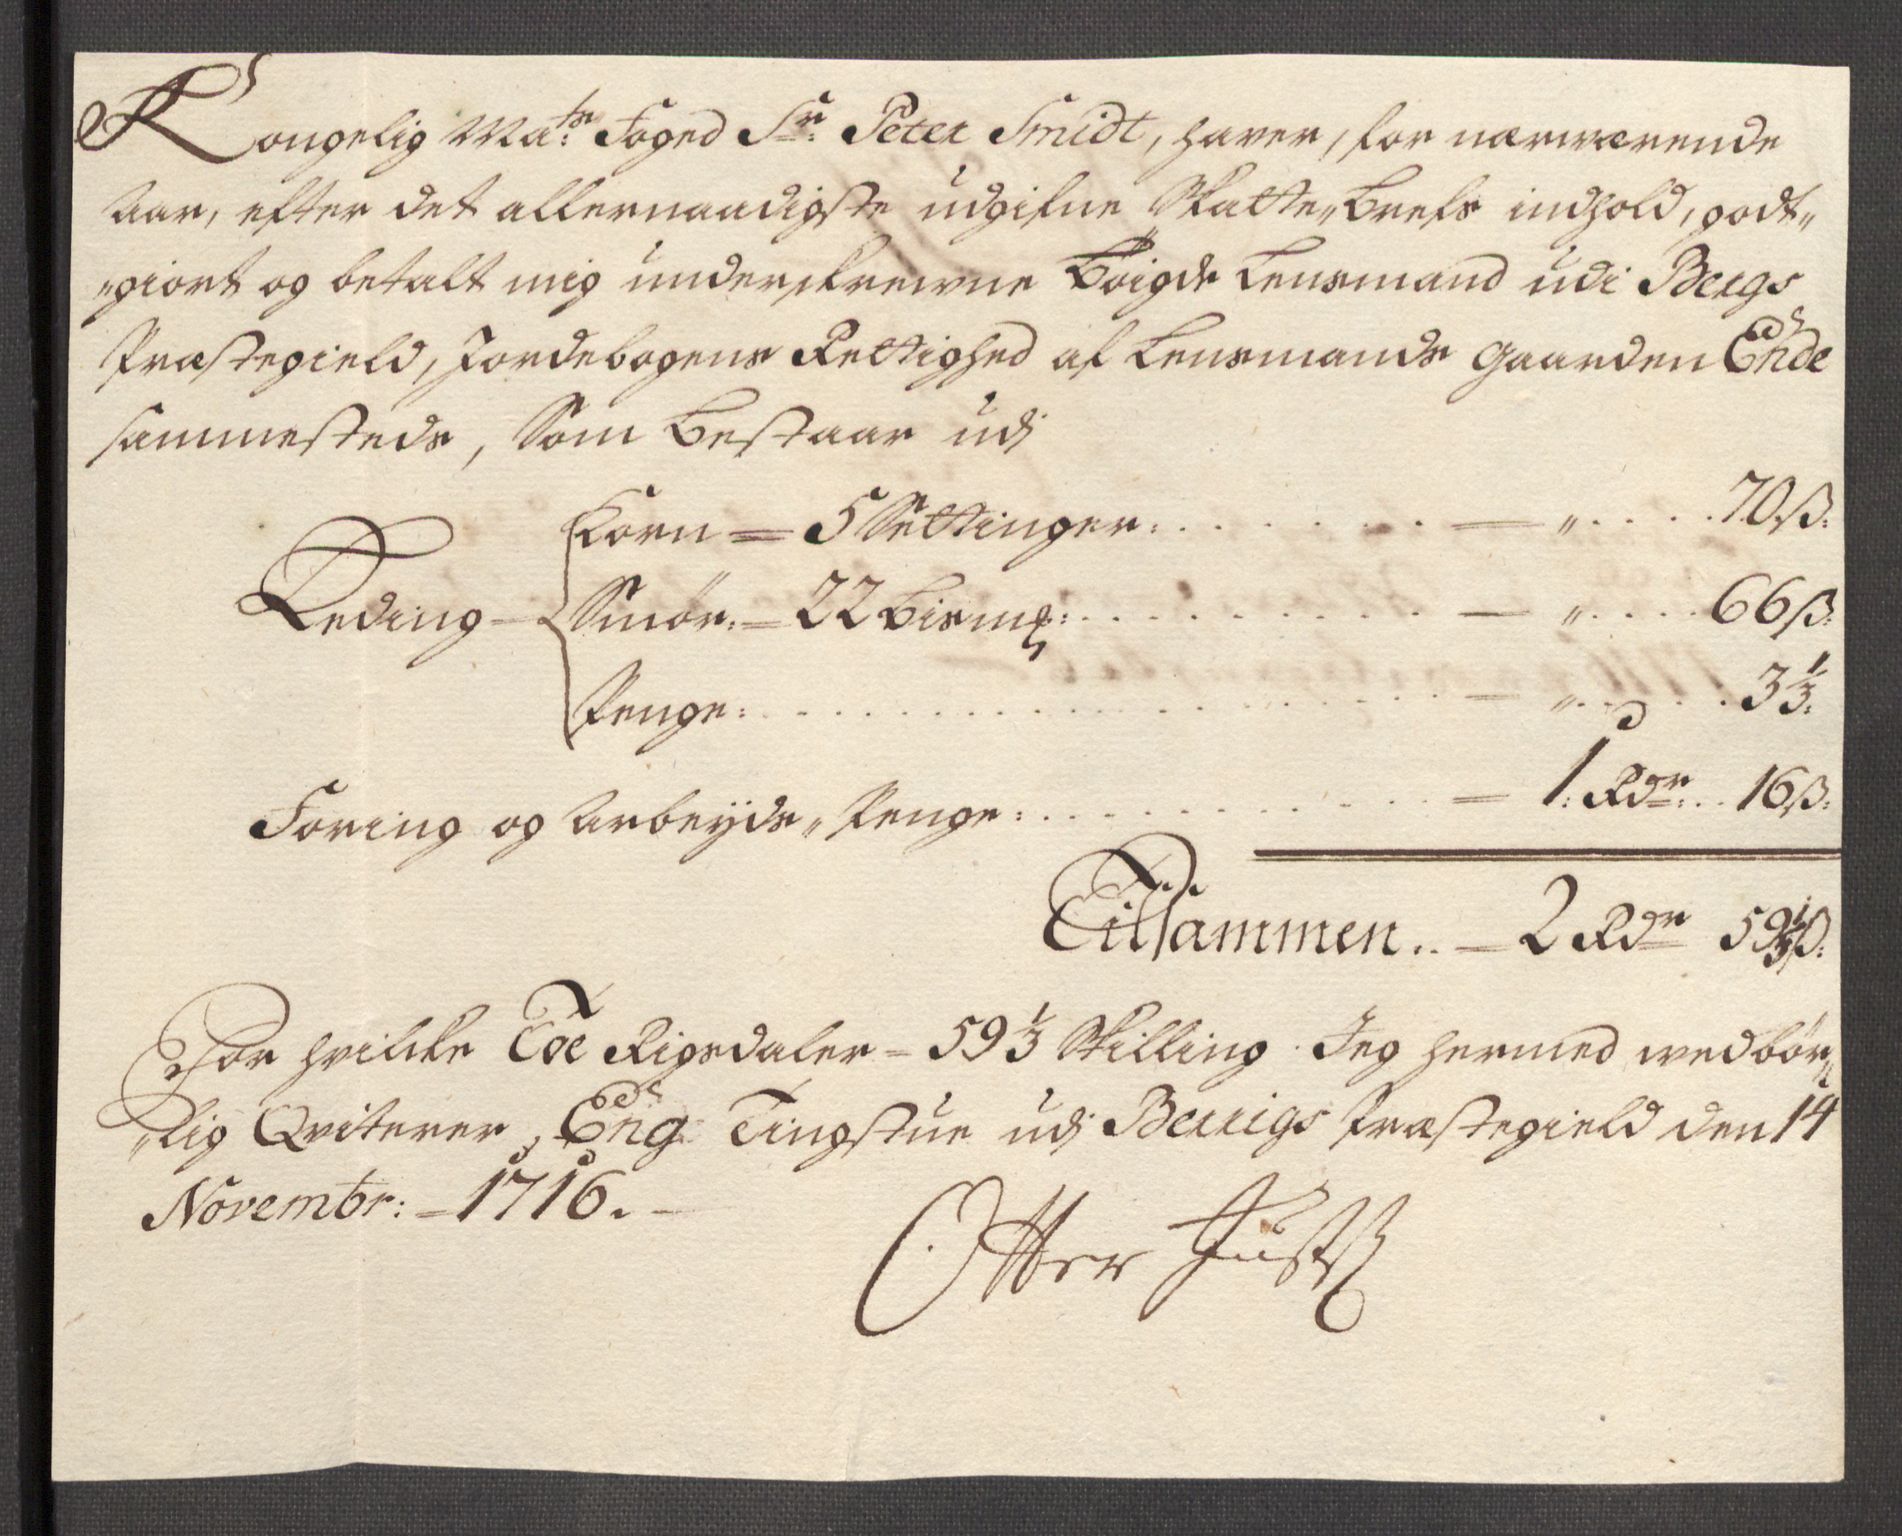 Kongelig Ma:ts Foged Sr: Peter Smidt, haver, for nærwærende
Aar, efter det allernaadigste udgifne Skatte„Brefs indhold, godt„
„giort og betalt mig underskrewne Bøigde Lensmand udi Bergs
Præstegield, Jordebogens Rettighed af Lensmands Gaarden Ende
sammesteds, Som Bestaar udj
Korn = 5 Settinger: — „ 70 ß:
Leding — Smør: = 22 Bism℔: — „ 66 ß:
Penge: — „ 3 1/3:
Foring og Arbeyds„Penge: = 1: Rdr: 16 ß:
Tilsammen.. = 2 Rdr 59 1/3 ß:
For hvilke Toe Rigsdaler = 59 1/3 Skilling Jeg hermed wedbør„
„lig Qviterer, Eng Tingstue udj Berrigs Præstegield den 14
Novembr: = 1716.
Otter